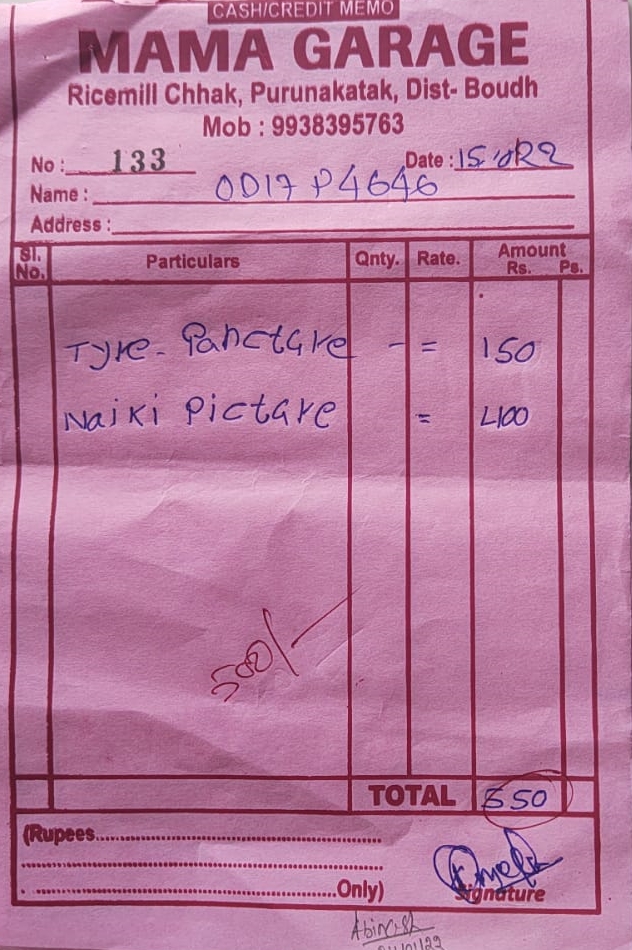 CASH/CREDIT MEMO
MAMA GARAGE
Ricemill Chhak, Purunakatak, Dist- Boudh
Mob : 9938395763
No : 133 Date :
Name : OD17 P4646
Address :
Sl. No. Particulars Qnty. Rate. Amount Rs. Ps.
Tyre - Panctare - = 150
Naiki Pictare = 400
500/-
TOTAL 550
(Rupees
Only)
Signature
Abinash